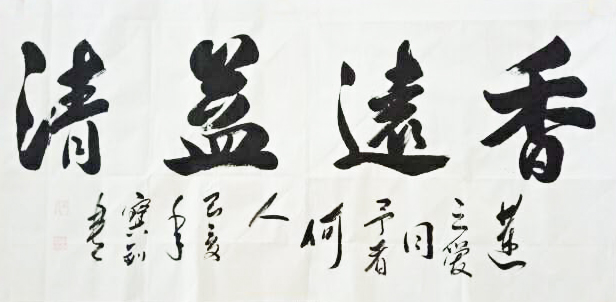 香遠益清
蓮之愛同予者何人 己亥年 書